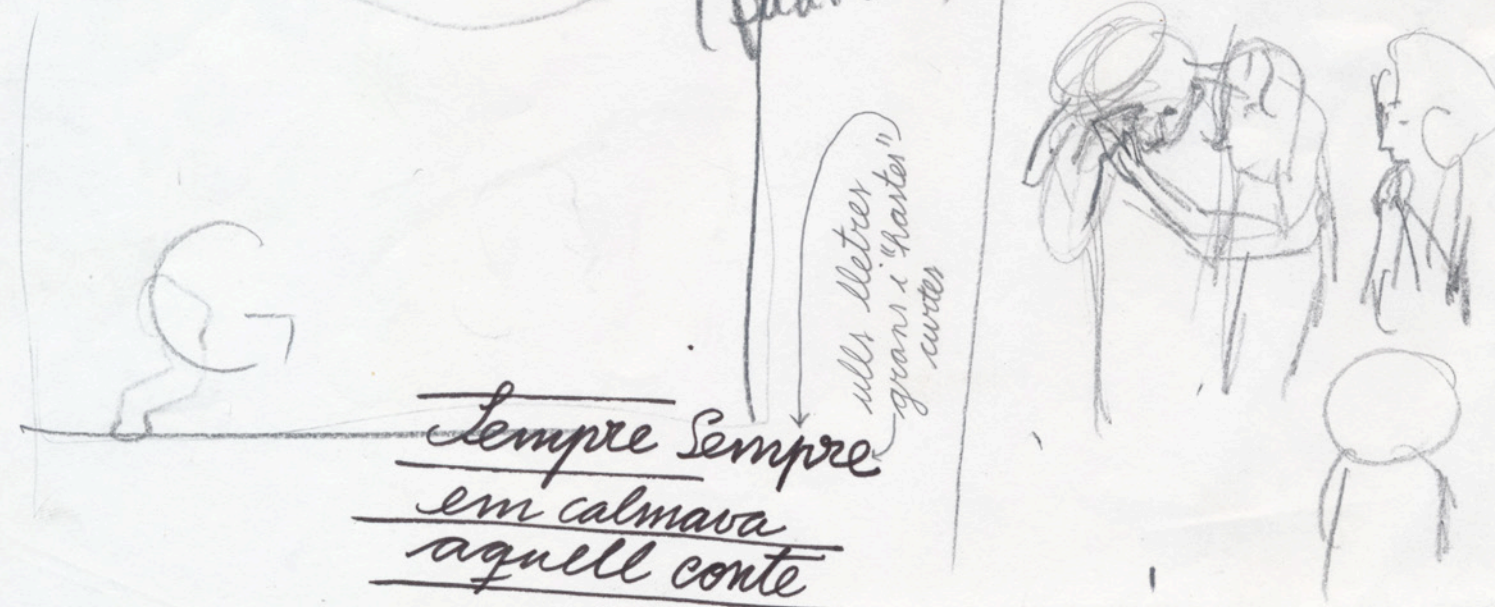 ulls lletres
grans i "hastes"
curtes
Sempre Sempre
em calmava
aquell conte